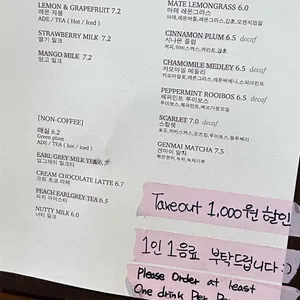 LEMON & GRAPEFRUIT 7.2
레몬 자몽
ADE / TEA ( Hot / Iced )
STRAWBERRY MILK 7.2
딸기 밀크
MANGO MILK 7.2
망고 밀크
[NON-COFFEE]
매실 6.2
Green plum
ADE / TEA ( hot / iced )
EARL GREY MILK TEA 6.7
얼그레이 밀크티
CREAM CHOCOLATE LATTE 6.7
크림 초코 라떼
PEACH EARLGREY TEA 6.5
피치 아이스티
NUTTY MILK 6.0
너티 밀크
MATE LEMONGRASS 6.0
마테 레몬그라스
CINNAMON PLUM 6.5 decaf
시나몬 플럼
CHAMOMILE MEDLEY 6.5 decaf
캬모마일 메들리
PEPPERMINT ROOIBOS 6.5 decaf
페퍼민트 루이보스
SCARLET 7.0 decaf
스칼렛
GENMAI MATCHA 7.5
겐마이 말차
Takeout 1,000원 할인
1인 1음료 부탁드립니다 :)
Please Order at least
One drink Per